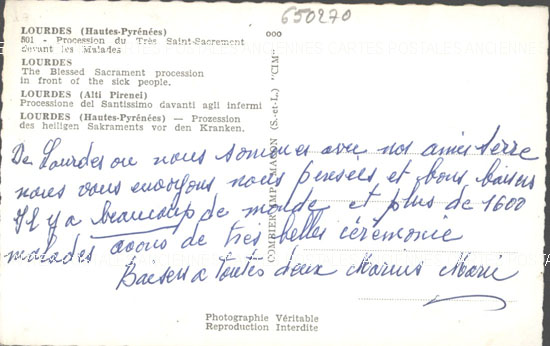 650270
LOURDES (Hautes-Pyrénées)
801 - Procession du Très Saint-Sacrement
devant les Malades
LOURDES
The Blessed Sacrament procession
in front of the sick people.
LOURDES (Alti Pirenei)
Processione del Santissimo davanti agli infermi
LOURDES (Hautes-Pyrénées) — Prozession
des heiligen Sakraments vor den Kranken.
COMBIER IMP. MACON (S.-et-L.) "CIM"
De Lourdes ou nous sommes avec nos amies Serre
nous vous envoyons nous pensées et bons baisers
Il y a beaucoup de monde et plus de 1600
malades avons de très belles cérémonie
Baisers a toutes deux Marius Marie
Photographie Véritable
Reproduction Interdite
ANCIENNES CARTES POSTALES ANCIENNES